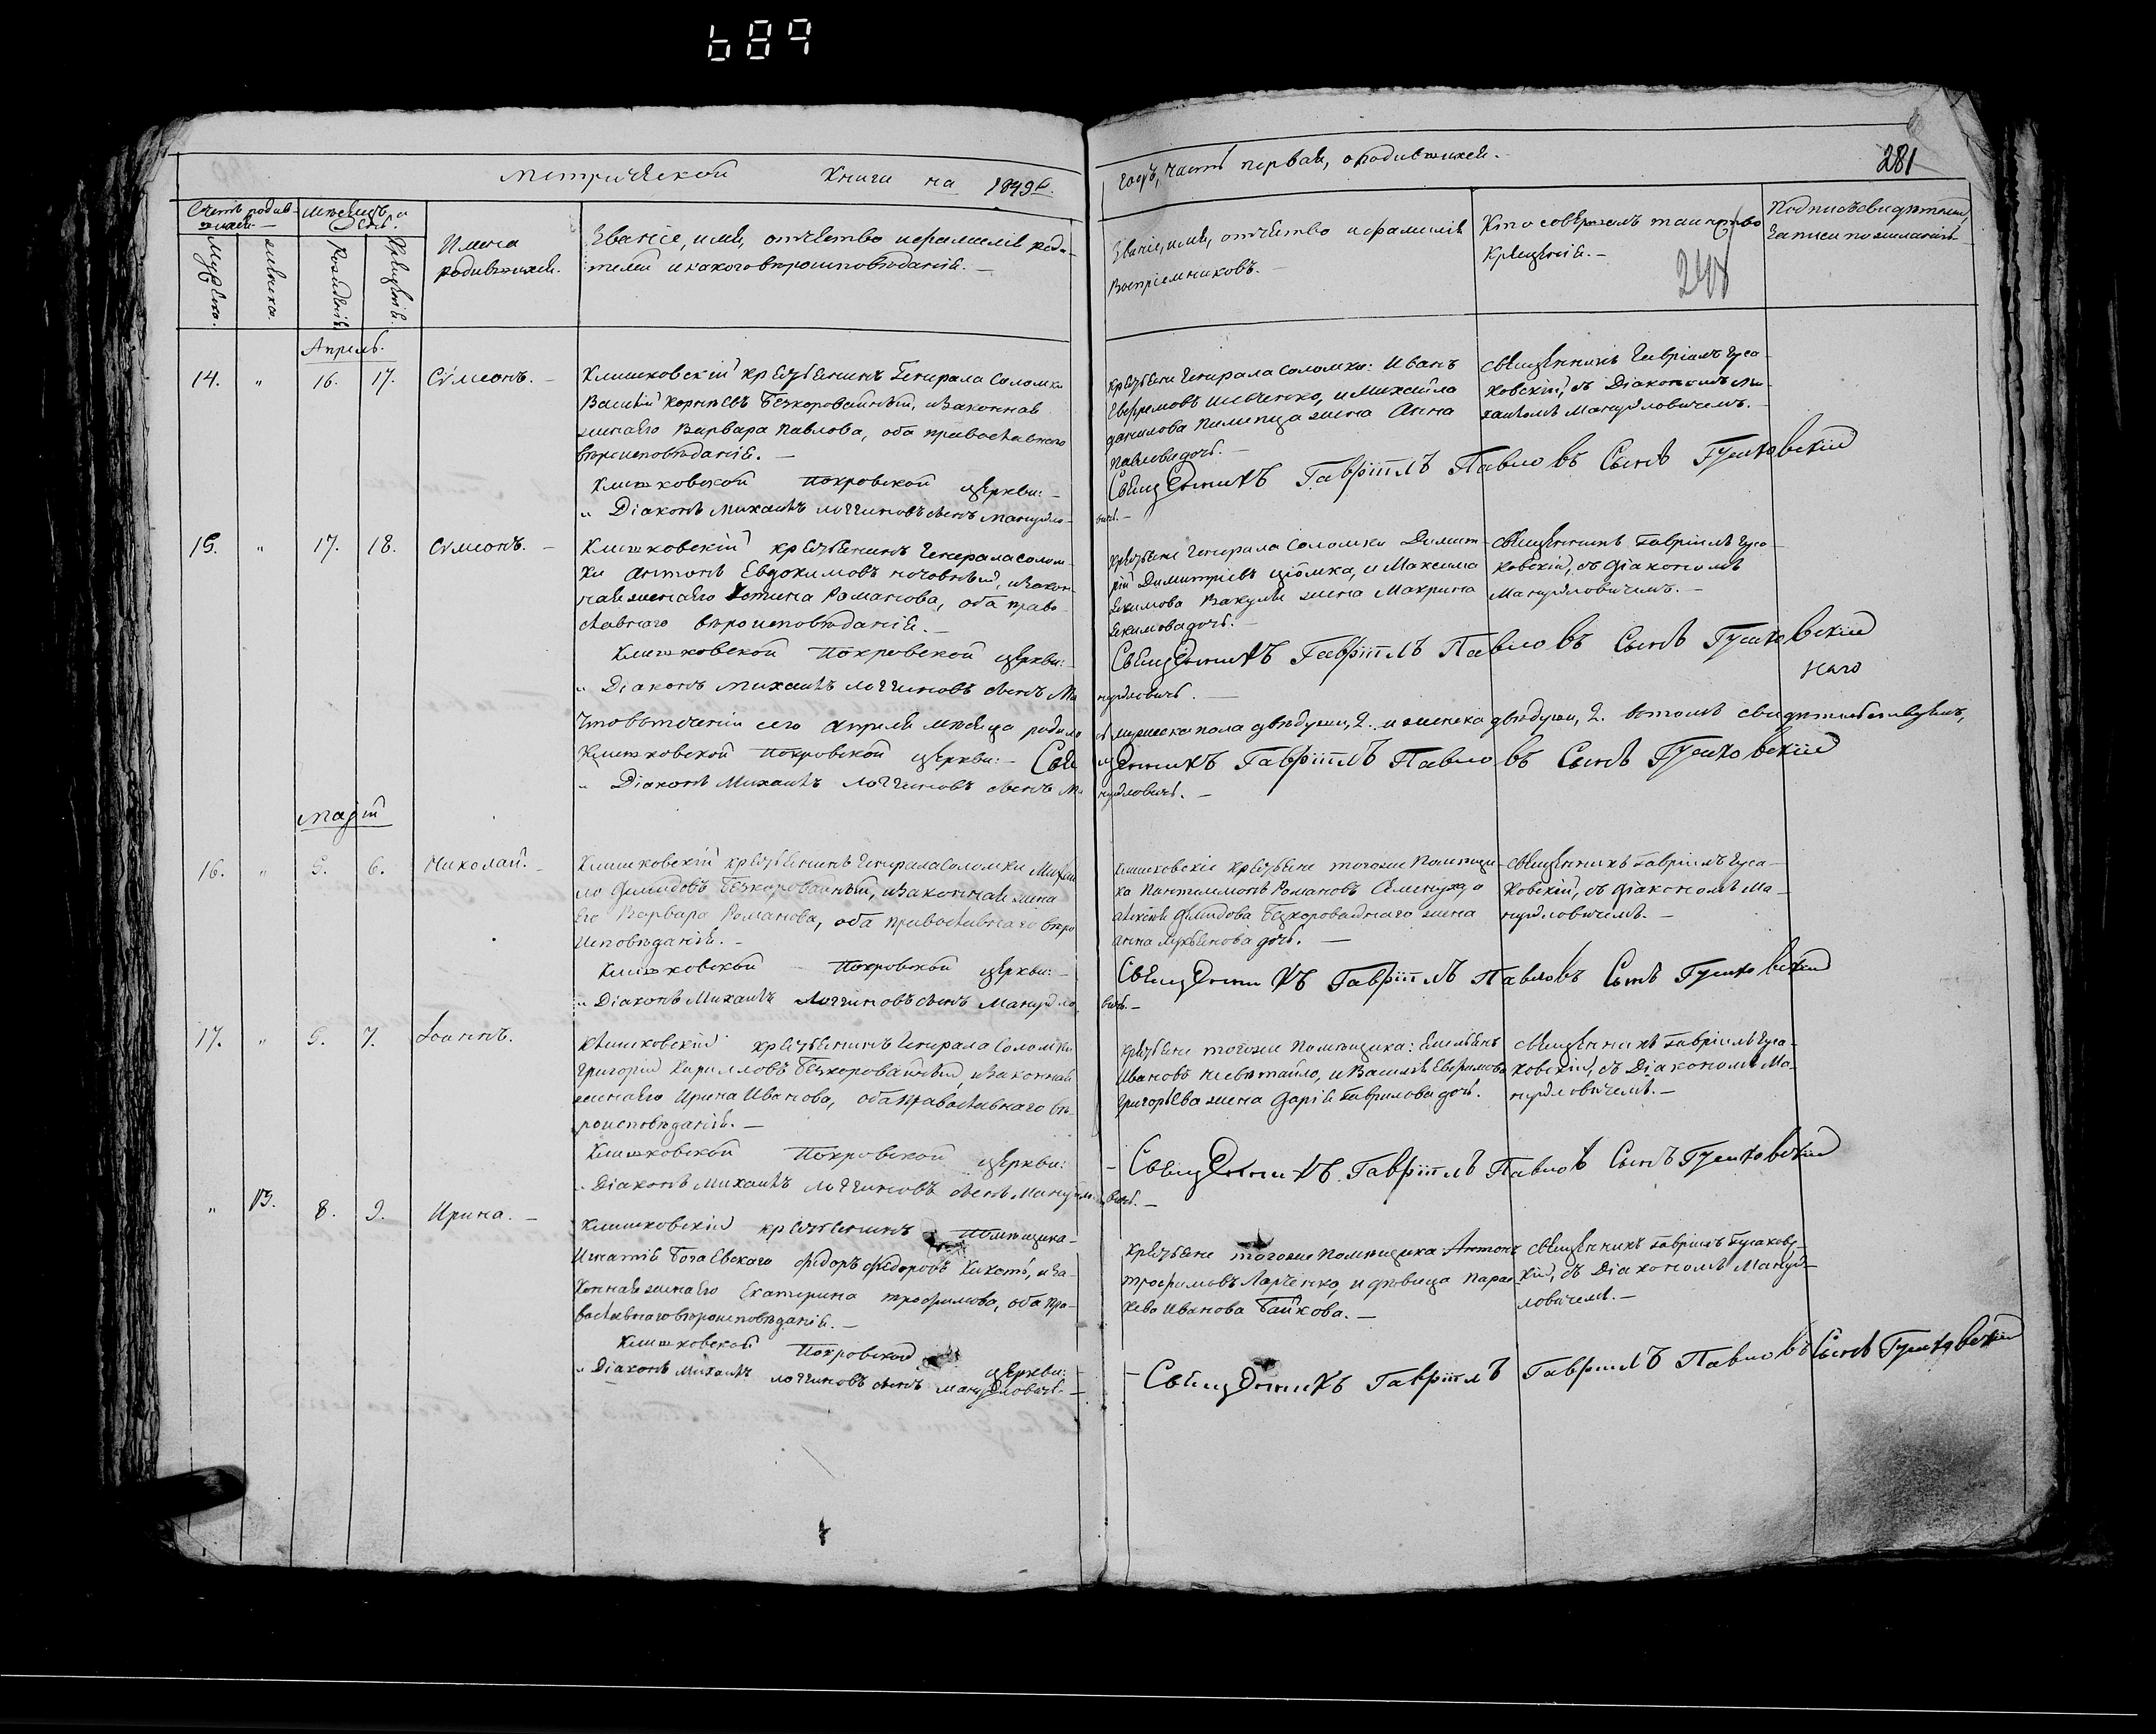 689
Метрической Книги на 1849й.
годъ, часть первая, о родившихся.
281
248
Счетъ родив-
шихся.
Мужеска.
женска.
Мѣсяцъ и
День.
Рожденія.
Крещенія.
Имена
родившихся.
Званіе, имя, отчество и фамилія роди-
телей и какого вѣроисповѣданія. —
Званіе, имя, отчество и фамилія
Воспріемниковъ. —
Кто совершалъ таинство
Крещенія. —
Подпись свидѣтелей
записи по желанію
Апрель.
14. " 16. 17. Сѵмеонъ. —
Клишковскій крестьянинъ Генерала Соломки
Василій Корнѣевъ Безкоровайный, и законная
жена его Варвара Павлова, оба православнаго
вѣроисповѣданія. —
крестьяне Генерала Соломки: Иванъ
Ефремовъ Шевченко, и Михаила
Данилова Пилипца жена Анна
Павлова дочь. —
священникъ Гавріилъ Гуса-
ковскій, съ Діакономъ Ми-
хаиломъ Мануйловичемъ. —
Клишковской Покровской церкви: —
Священникъ Гавріилъ Павловъ Сынъ Гусаковскій
" Діаконъ Михаилъ Логгиновъ сынъ Мануйло-
вичь. —
15. " 17. 18. Сѵмеонъ. —
Клишковскій крестьянинъ Генерала Солом-
ки Антонъ Евдокимовъ Ночовный, и закон-
ная жена его Фотина Романова, оба право-
славнаго вѣроисповѣданія. —
крестьяне Генерала Соломки Димит-
рій Димитріевъ Ціомка, и Максима
Екимова Вакулы жена Макрина
Екимова дочь. —
священникъ Гавріилъ Гуса-
ковскій, съ Діакономъ
Мануйловичемъ. —
Клишковской Покровской церкви: —
Священникъ Гавріилъ Павловъ Сынъ Гусаковскій
" Діаконъ Михаилъ Логгиновъ сынъ Ма
нуйловичь. —
Что въ теченіи сего Апреля мѣсяца родило
сь мужеска пола двѣ души, 2. и женска двѣ души, 2. въ томъ свидѣтельствуемъ,
Клишковской Покровской церкви: — Свя
щенникъ Гавріилъ Павловъ Сынъ Гусаковскій
" Діаконъ Михаилъ Логгиновъ сынъ Ма
нуйловичь. —
Маій
16. " 5. 6. Николай. —
Клишковскій крестьянинъ Генерала Соломки Михаи
ло Демидовъ Безкоровайный, и законная жена
его Варвара Романова, оба православнаго вѣро
исповѣданія. —
Клишковскіе крестьяне тогоже Помѣщи-
ка Пантилимонъ Романовъ Семенуха, и
Алексія Демидова Безкоровайнаго жена
Анна Лукьянова дочь. —
священникъ Гавріилъ Гуса-
ковскій, съ Діакономъ Ма-
нуйловичемъ. —
Клишковской Покровской церкви: —
Священникъ Гавріилъ Павловъ Сынъ Гусаковскій
" Діаконъ Михаилъ Логгиновъ сынъ Мануйло
вичь. —
17. " 5. 7. Іоаннъ.
Клишковскій крестьянинъ Генерала Соломки
Григорій Кирилловъ Безкоровайный, и законная
жена его Ирина Иванова, оба православнаго вѣ-
роисповѣданія. —
крестьяне тогоже Помѣщика: Емельянъ
Ивановъ Несвѣтайло, и Василія Ефремова
Григорьева жена Дарія Гаврилова дочь.
священникъ Гавріилъ Гуса-
ковскій, съ Діакономъ Ма-
нуйловичемъ. —
Клишковской Покровской церкви:
Священникъ Гавріилъ Павловъ Сынъ Гусаковскій
" Діаконъ Михаилъ Логгиновъ сынъ Мануйло
вичь. —
" 13. 8. 9. Ирина. —
Клишковскій крестьянинъ Помѣщика
Игнатія Богаевскаго Федоръ Федоровъ Кикоть, и за-
конная жена его Екатерина Трофимова, оба пра-
вославнаго вѣроисповѣданія. —
крестьяне тогоже Помѣщика Антонъ
Трофимовъ Ларченко, и дѣвица Парас-
кева Иванова Байкова. —
священникъ Гавріилъ Гусаковс-
кій, съ Діакономъ Мануй-
ловичемъ. —
Клишковской Покровской церкви:
Священникъ Гавріилъ Гавріилъ Павловъ Сынъ Гусаковскій
" Діаконъ Михаилъ Логгиновъ сынъ Мануйловичь. —